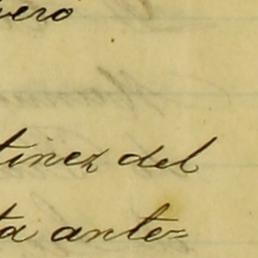 vero
tinez del
ta ante=